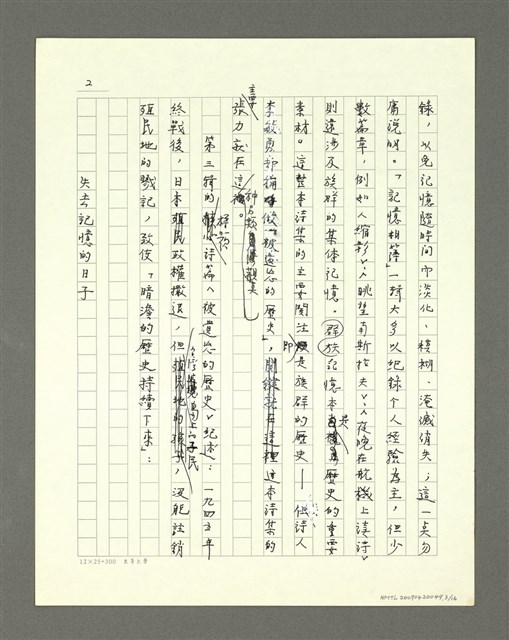 2
錄，以免記憶隨時間而淡化、模糊、淹滅消失；這一點勿
庸說明。「記憶相簿」一輯大多以紀錄個人經驗為主，但少
數篇章，例如〈縮影〉、〈眺望南斯拉夫〉、〈夜晚在航機上讀詩〉
則還涉及族群的集体記憶。群族記憶本是歷史的重要
素材。這整本詩集的主要關注即是族群的歷史——但詩人
李敏勇卻稱做「被遺忘的歷史」，關鍵就在這裡這本詩集的
張力蓋在這裡。
第三輯的詩篇〈被遺忘的歷史〉紀述：一九四五年
終戰後，日本殖民政權撤退，但島上子民，沒能註銷
殖民地的戳記，致使「暗澹的歷史持續下來」：
失去記憶的日子
12×25=300
NMTL20090420049,2/16